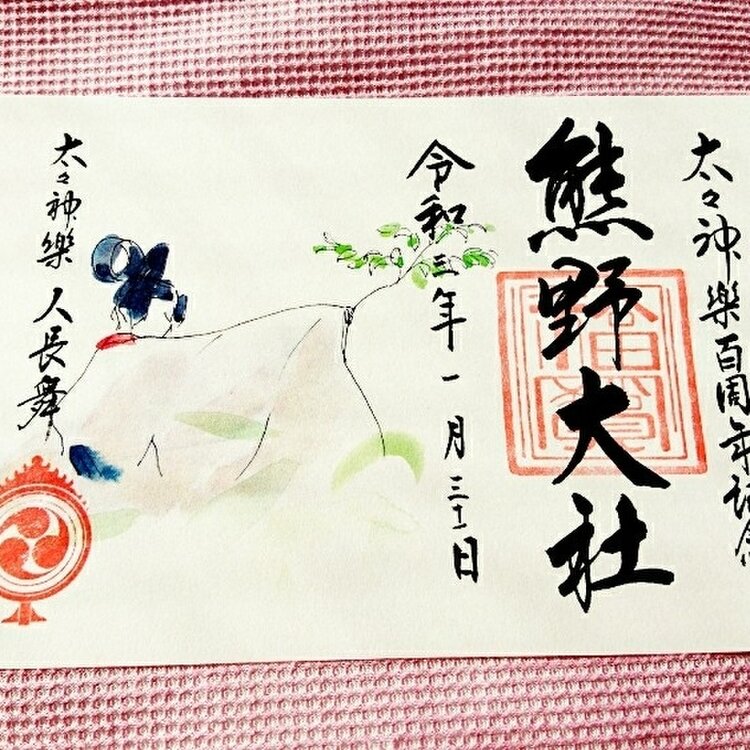 太々神樂百周年記念
熊野大社
令和三年一月三十一日
太々神樂 人長舞